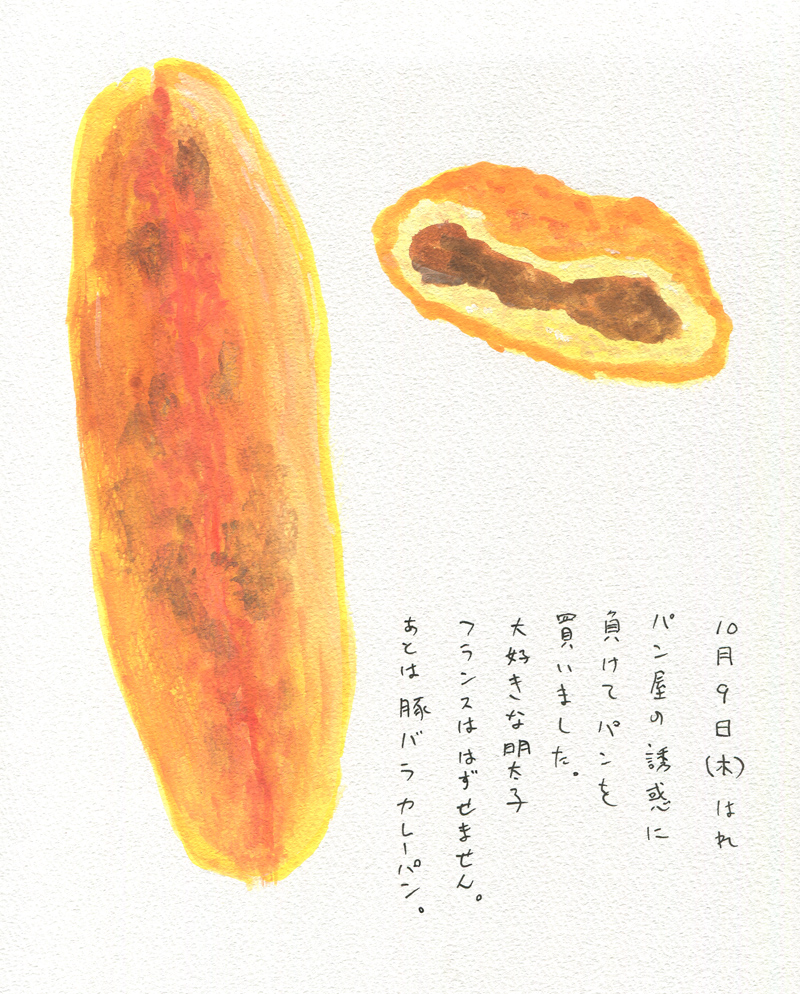 10月9日(木)はれ
パン屋の誘惑に
負けてパンを
買いました。
大好きな明太子
フランスははずせません。
あとは豚バラカレーパン。